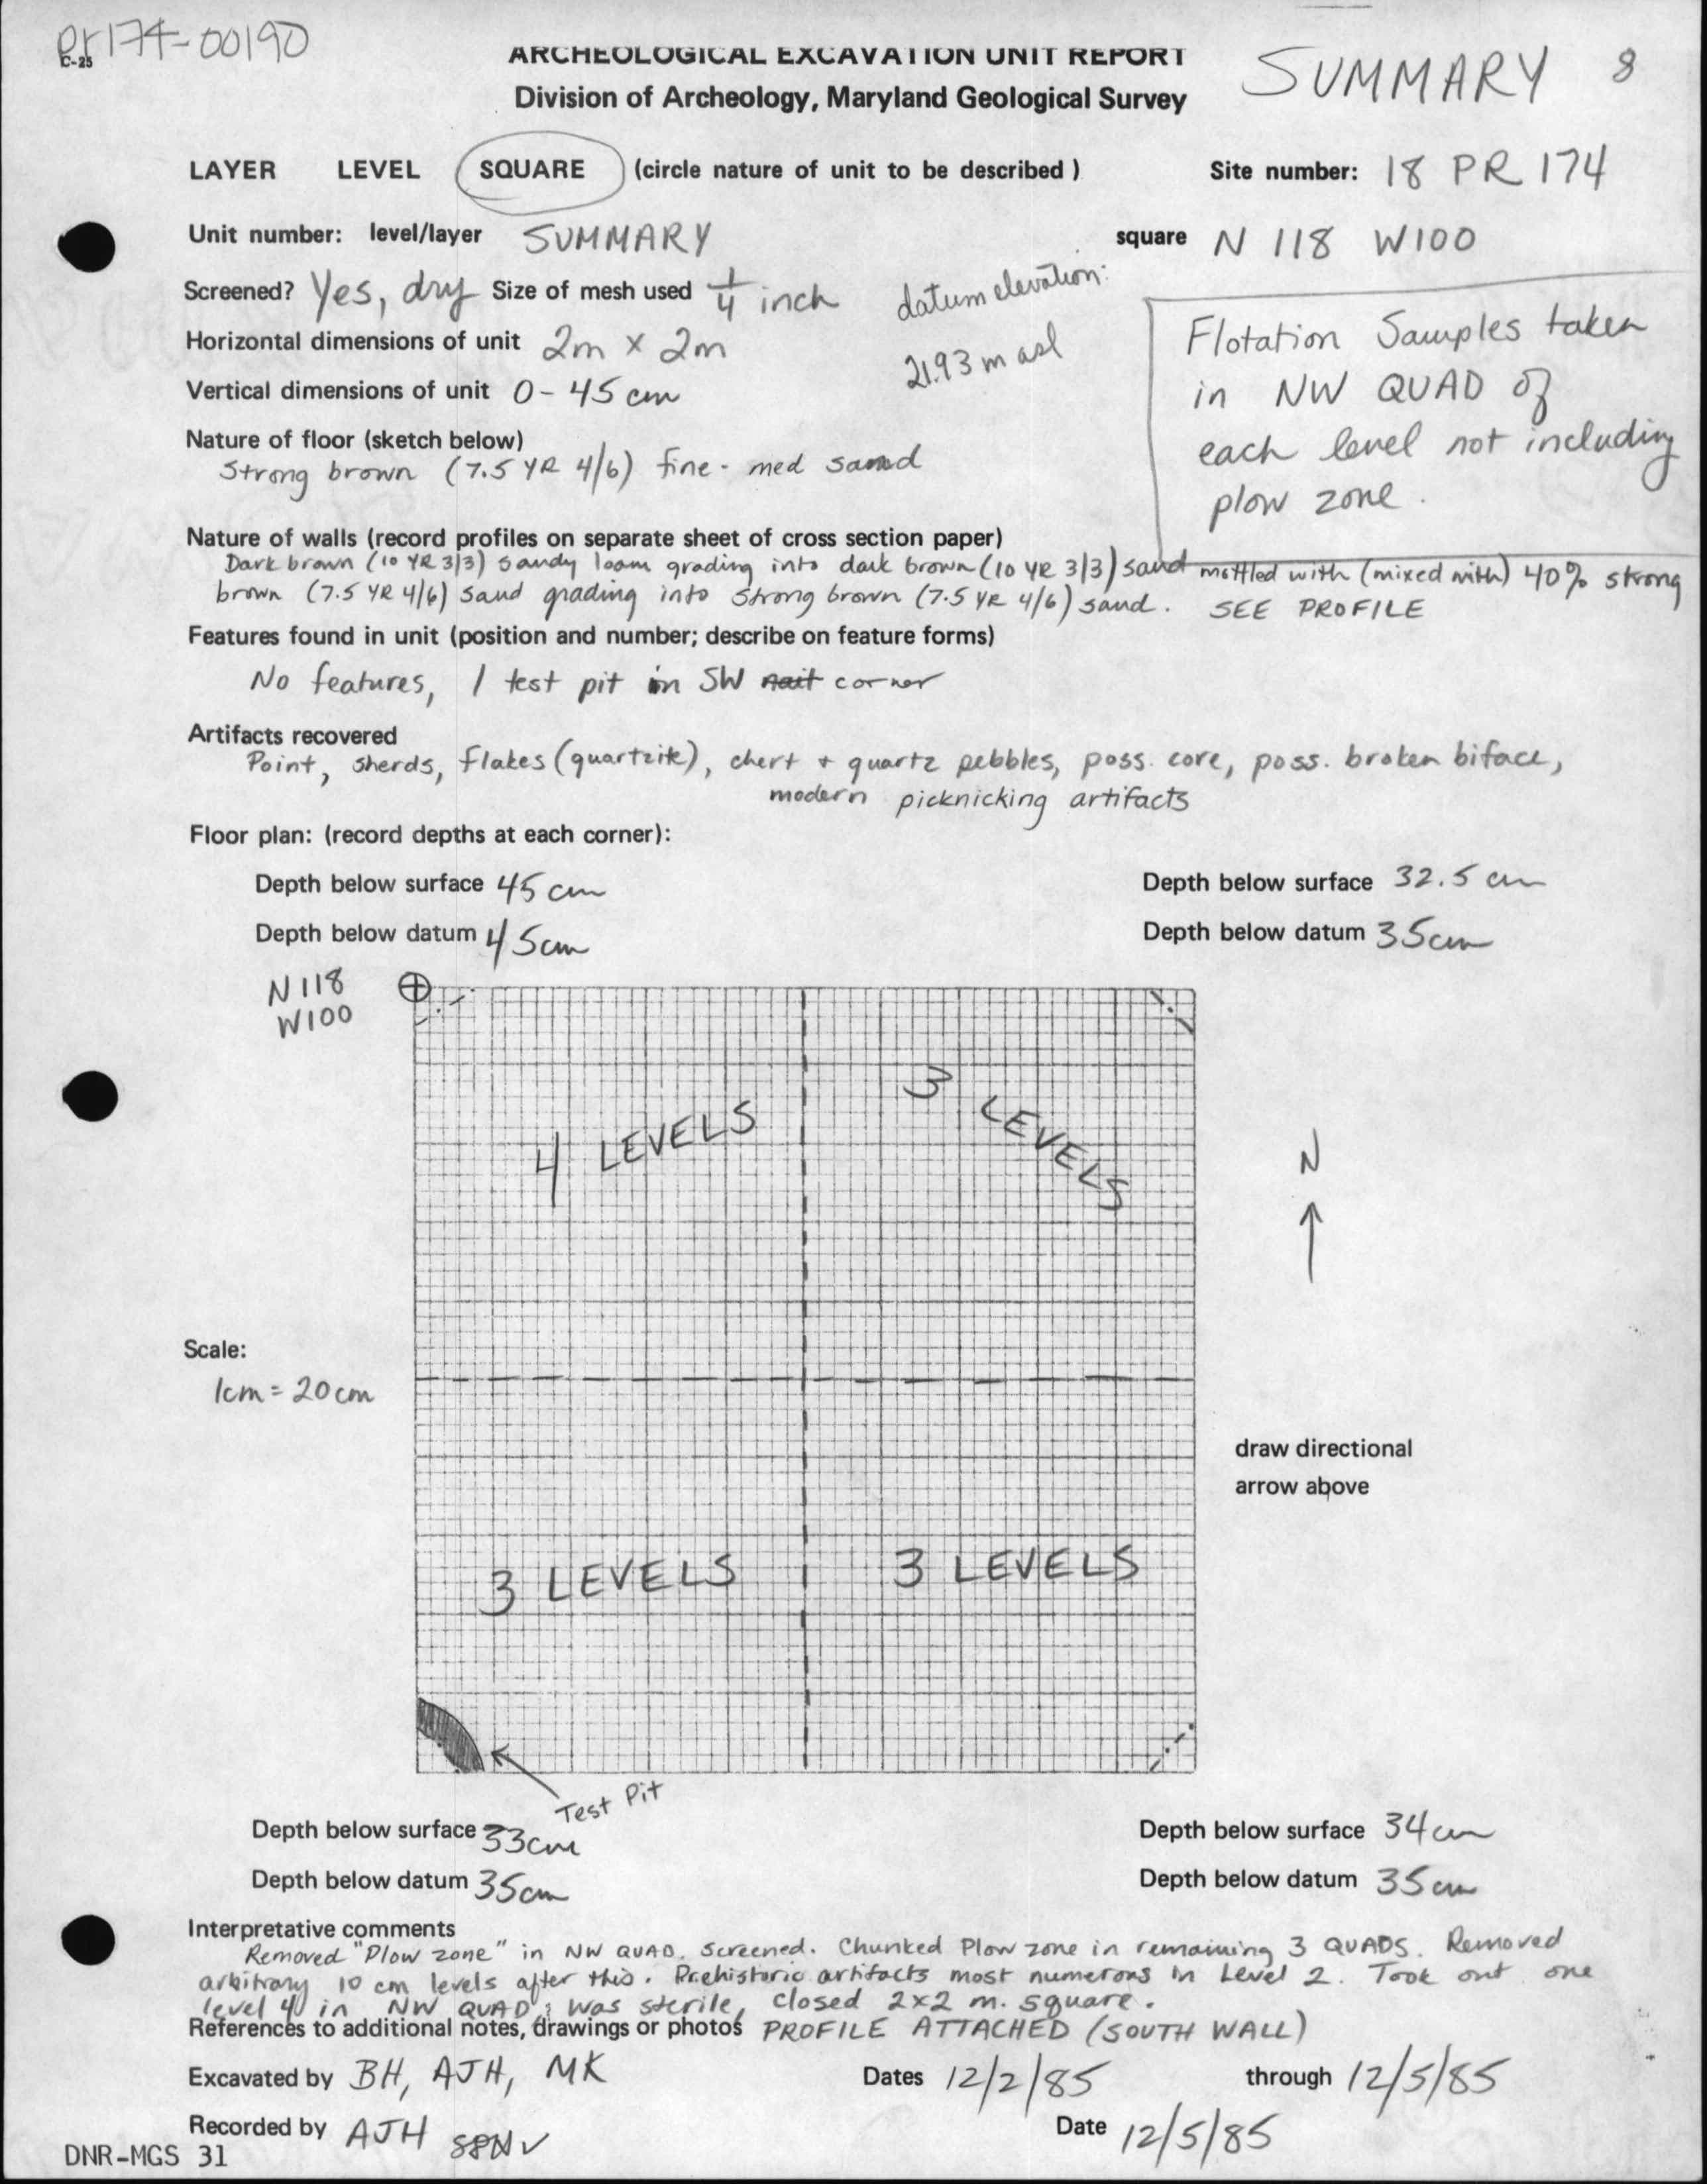 Pr174-00190
C-25
ARCHEOLOGICAL EXCAVATION UNIT REPORT
SUMMARY 8
Division of Archeology, Maryland Geological Survey
LAYER LEVEL SQUARE (circle nature of unit to be described )
Site number: 18 PR 174
Unit number: level/layer SUMMARY
square N 118 W100
Screened? Yes, dry Size of mesh used 1/4 inch
datum elevation:
21.93 m asl
Horizontal dimensions of unit 2m x 2m
Vertical dimensions of unit 0-45 cm
Flotation Samples taken
in NW QUAD of
each level not including
plow zone.
Nature of floor (sketch below)
Strong brown (7.5 YR 4/6) fine - med sand
Nature of walls (record profiles on separate sheet of cross section paper)
Dark brown (10 YR 3/3) sandy loam grading into dark brown (10 YR 3/3) sand mottled with (mixed with) 40% strong
brown (7.5 YR 4/6) sand grading into strong brown (7.5 YR 4/6) sand. SEE PROFILE
Features found in unit (position and number; describe on feature forms)
No features, 1 test pit in SW corner
Artifacts recovered
Point, sherds, flakes (quartzite), chert + quartz pebbles, poss. core, poss. broken biface,
modern picknicking artifacts
Floor plan: (record depths at each corner):
Depth below surface 45 cm
Depth below surface 32.5 cm
Depth below datum 45cm
Depth below datum 35cm
N118
W100
4 LEVELS
3 LEVELS
N
Scale:
1cm = 20cm
draw directional
arrow above
3 LEVELS
3 LEVELS
Test Pit
Depth below surface 33cm
Depth below surface 34cm
Depth below datum 35cm
Depth below datum 35cm
Interpretative comments
Removed "Plow zone" in NW QUAD. Screened. Chunked Plow zone in remaining 3 QUADS. Removed
arbitrary 10 cm levels after this. Prehistoric artifacts most numerous in Level 2. Took out one
level 4 in NW QUAD; was sterile, closed 2x2 m. square.
References to additional notes, drawings or photos PROFILE ATTACHED (SOUTH WALL)
Excavated by BH, AJH, MK
Dates 12/2/85 through 12/5/85
Recorded by AJH
Date 12/5/85
DNR-MGS 31